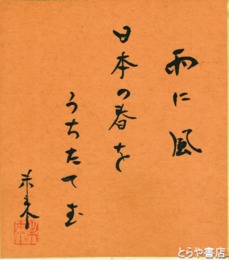 雨に風
日本の春を
うちたてま
未来
とらや書店